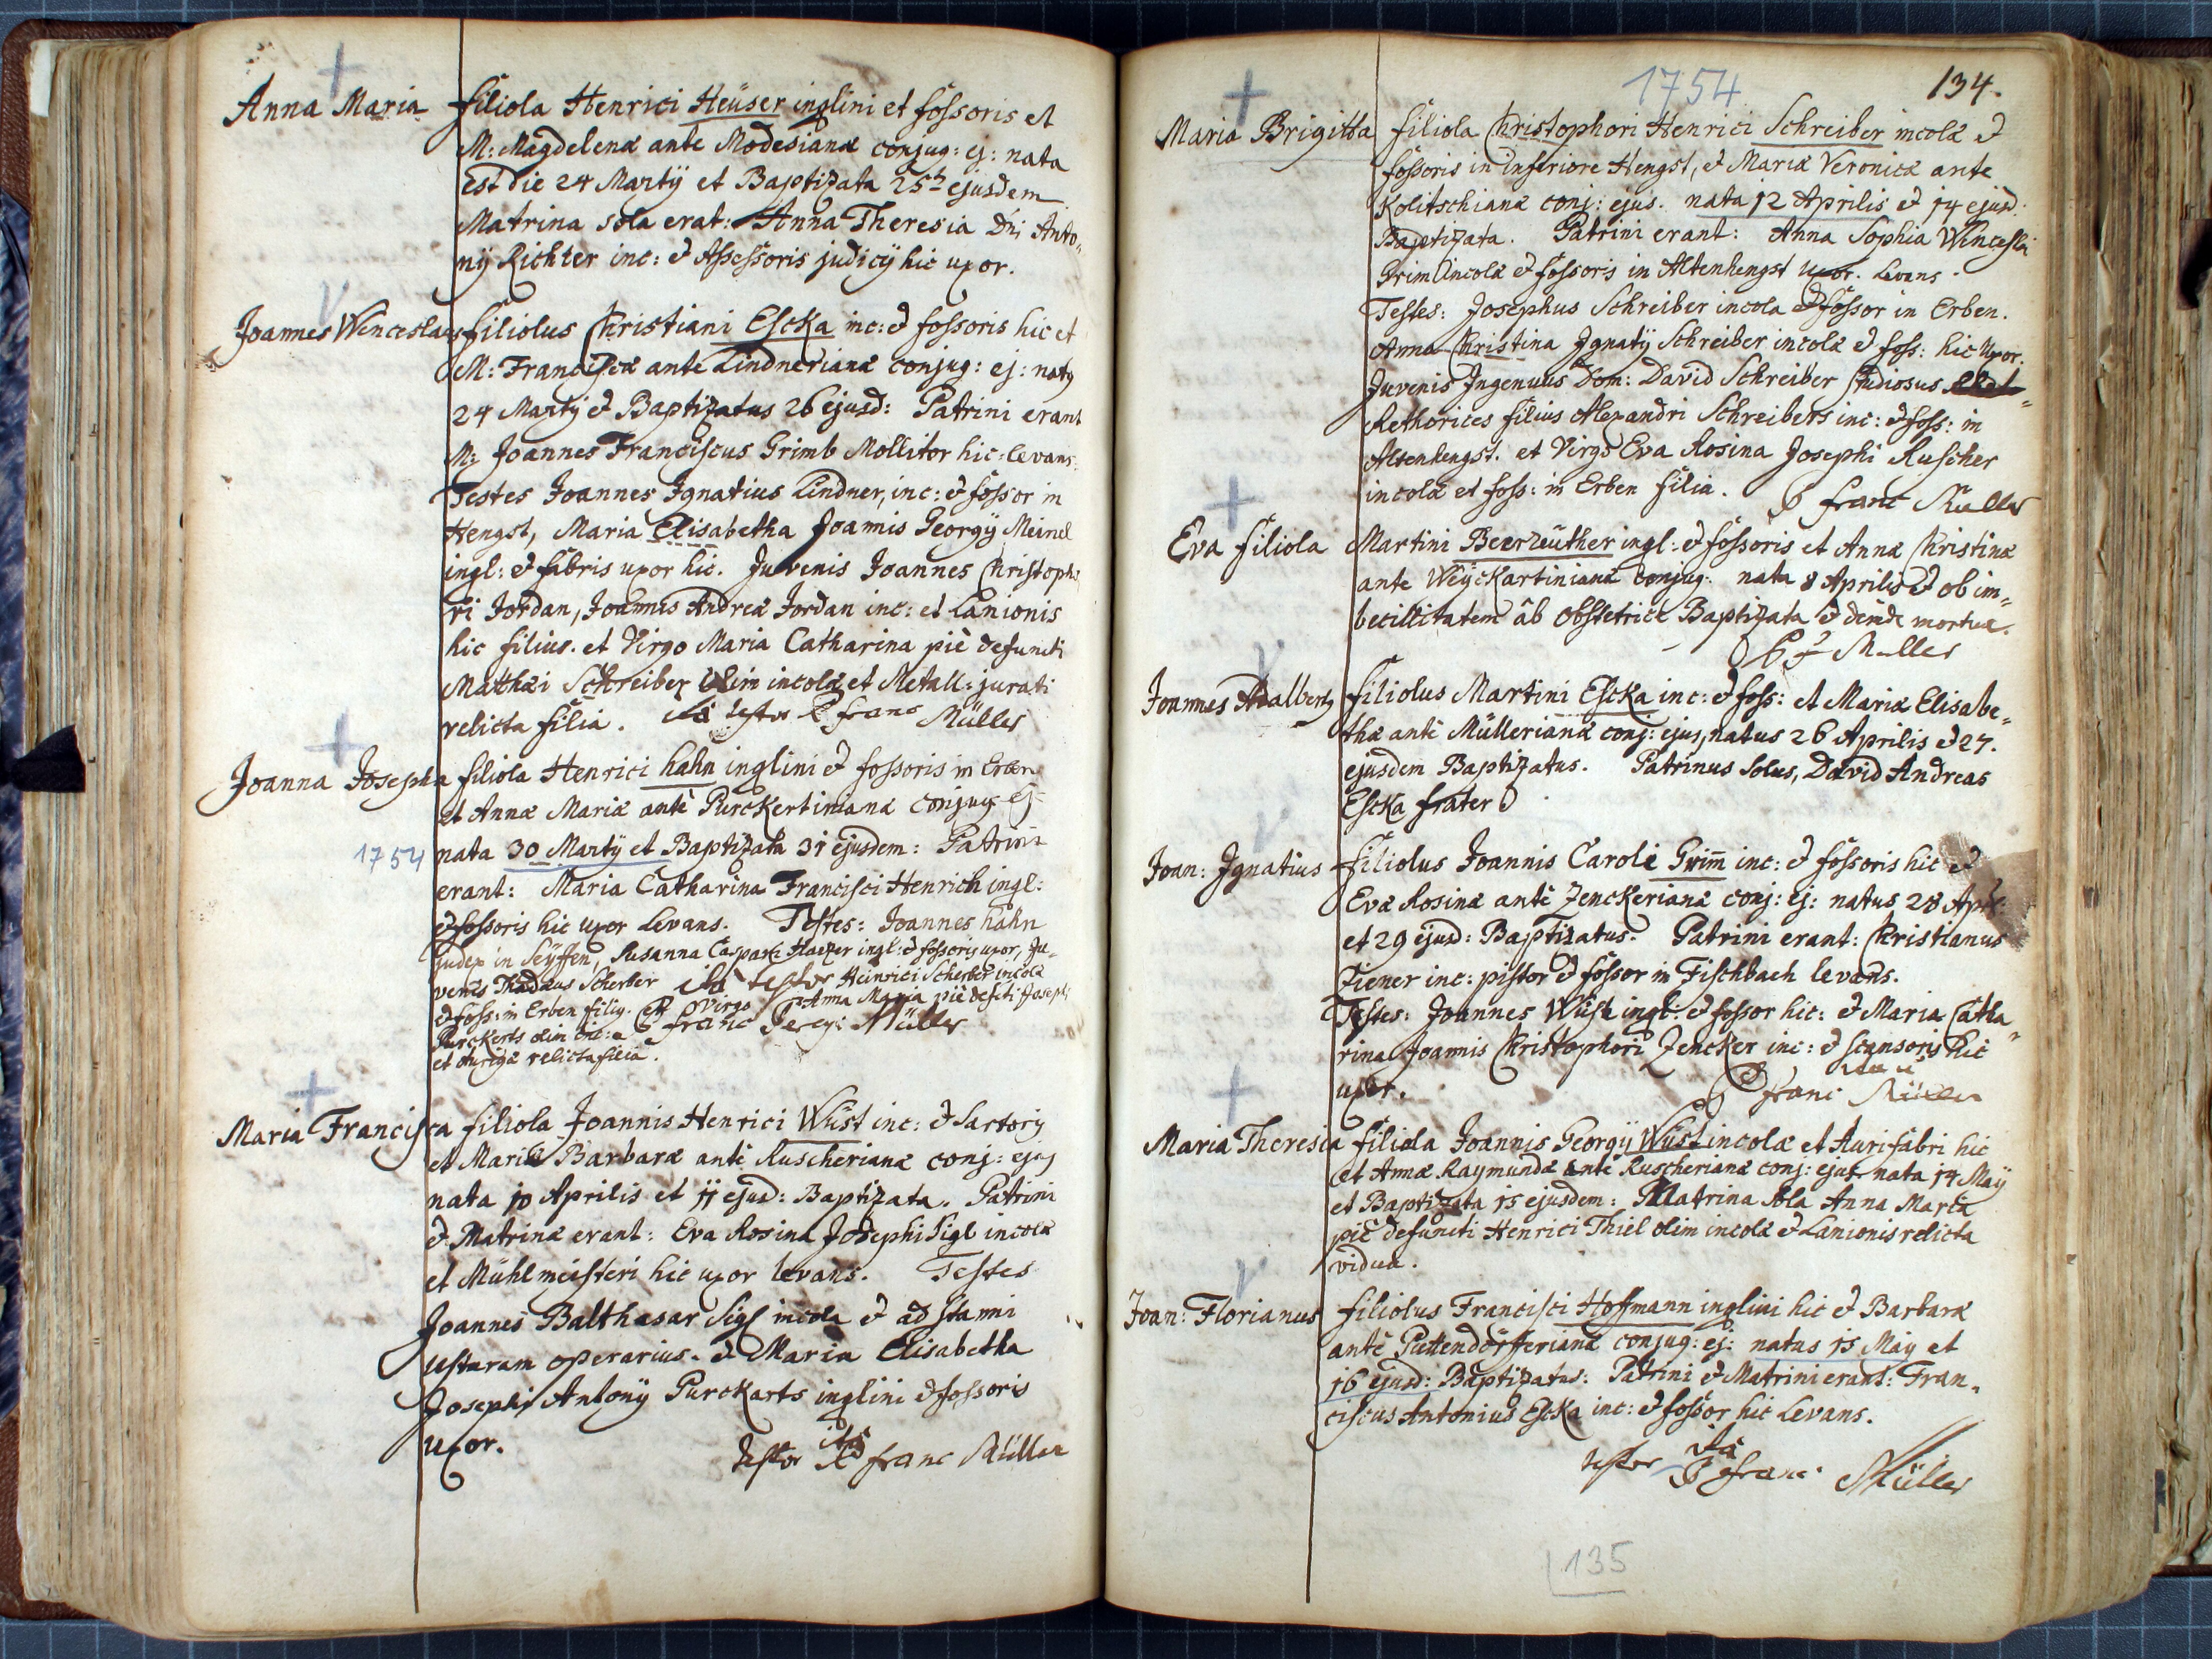 Anna Maria filiola Henrici Heüser inglini et fossoris et
M: Magdelenæ ante Modesianæ conjug: ej: nata
est die 24 Martÿ et Baptizata 25ta ejusdem
Matrina sola erat: Anna Theresia Dni Anto=
nÿ Richter inc: & Assessoris judicÿ hic uxor.
Joannes Wenceslaus filiolus Christiani Escka inc: & fossoris hic et
M: Franciscæ ante Lindnerianæ conjug: ej: natus
24 Martÿ & Baptizatus 26 ejusd: Patrini erant
M: Joannes Franciscus Grimb Mollitor hic levans.
Testes Joannes Ignatius Lindner, inc: & fossor in
Hengst, Maria Elisabetha Joannis Georgÿ Meinel
ingl: & fabris uxor hic. Juvenis Joannes Christopho
ri Jordan, Joannis Andreæ Jordan inc: et Lanionis
hic filius. et Virgo Maria Catharina piè defuncti
Mathæi Schreiber olim incolæ et Metall: jurati
relicta filia. ità testor P franc Müller
Joanna Josepha filiola Henrici hahn inglini & fossoris in Erben
et Annæ Mariæ antè Purckertinianæ conjug ej:
1754 nata 30 Martÿ et Baptizata 31 ejusdem: Patrini
erant: Maria Catharina Francisci Henrich ingl:
& fossoris hic uxor Levans. Testes: Joannes hahn
judex in Seÿffen, Susanna Caspari ingl: & fossoris uxor, Ju=
venis Thadæus Scherber ità testor Heinrici Scherber incolæ
& foss: in Erben filig. et Virgo Anna Maria piè defcti Josephi
Purckerts olim inc: P franc Müller
et aurigæ relicta filia.
Maria Francisca filiola Joannis Henrici Wüst inc: & Sartoris
et Mariæ Barbaræ antè Ruscherianæ conj: ejus
nata 10 Aprilis et 11 ejusd: Baptizata. Patrini
& Matrinæ erant: Eva Rosina Josephi Sigl incolæ
et Mühlmeisteri hic uxor levans. Testes
Joannes Balthasar Sigl incola & ad stanni
usturam operarius. & Maria Elisabetha
Josephi Antonÿ Purckarts inglini & fossoris
uxor. ità
testor P franc Müller
1754 134.
Maria Brigitta filiola Christophori Henrici Schreiber incolæ &
fossoris in inferiore Hengst, & Mariæ Veronicæ ante
Kolitschianæ conj: ejus. nata 12 Aprilis & 14 ejusd:
Baptizata. Patrini erant: Anna Sophia Wenceslai
Grim incolæ & fossoris in Altenhengst uxor. Levans.
Testes: Josephus Schreiber incola & fossor in Erben.
Anna Christina Ignatÿ Schreiber incolæ & foss: hic Uxor.
Juvenis Ingenuus Dom: David Schreiber Studiosus
Rethorices filius Alexandri Schreibers inc: & foss: in
Altenhengst. et Virgo Eva Rosina Josephi Ruscher
incolæ et foss: in Erben filia. P franc Müller
Eva filiola Martini Beerreüther ingl: & fossoris et Annæ Christinæ
ante Weÿckartinianæ conjug: nata 8 Aprilis & ob im=
becillitatem ab obstetrice Baptizata & deinde mortua.
P f Müller
Joannes Adalbertus filiolus Martini Escka inc: & foss: et Mariæ Elisabe=
thæ antè Müllerianæ conj: ejus, natus 26 Aprilis & 27.
ejusdem Baptizatus. Patrinus solus, David Andreas
Escka frater
Joan: Ignatius filiolus Joannis Caroli Grim̄ inc: & fossoris hic &
Evæ Rosinæ antè Zenckerianæ conj: ej: natus 28 Apri:
et 29 ejusd: Baptizatus. Patrini erant: Christianus
Tiener inc: pistor & fossor in Fischbach levans.
Testes: Joannes Wüst ingl: & fossor hic: & Maria Catha=
rina Joannis Christophori Zencker inc: & scansoris hic
uxor. P franc Müller
Maria Theresia filiola Joannis Georgÿ Wüst incolæ et Aurifabri hic
et Annæ Raymundæ antè Ruscherianæ conj: ejus nata 14 Maÿ
et Baptizata 15 ejusdem: Matrina sola Anna Maria
piè defuncti Henrici Thiel olim incolæ & Lanionis relicta
vidua.
Joan: Florianus filiolus Francisci Hoffmann inglini hic & Barbaræ
antè Püttendörfferianæ conjug: ej: natus 15 Maÿ et
16 ejusd: Baptizatus: Patrini & Matrini erant: Fran=
ciscus Antonius Escka inc: & fossor hic Levans.
ità
testor P franc Müller
135